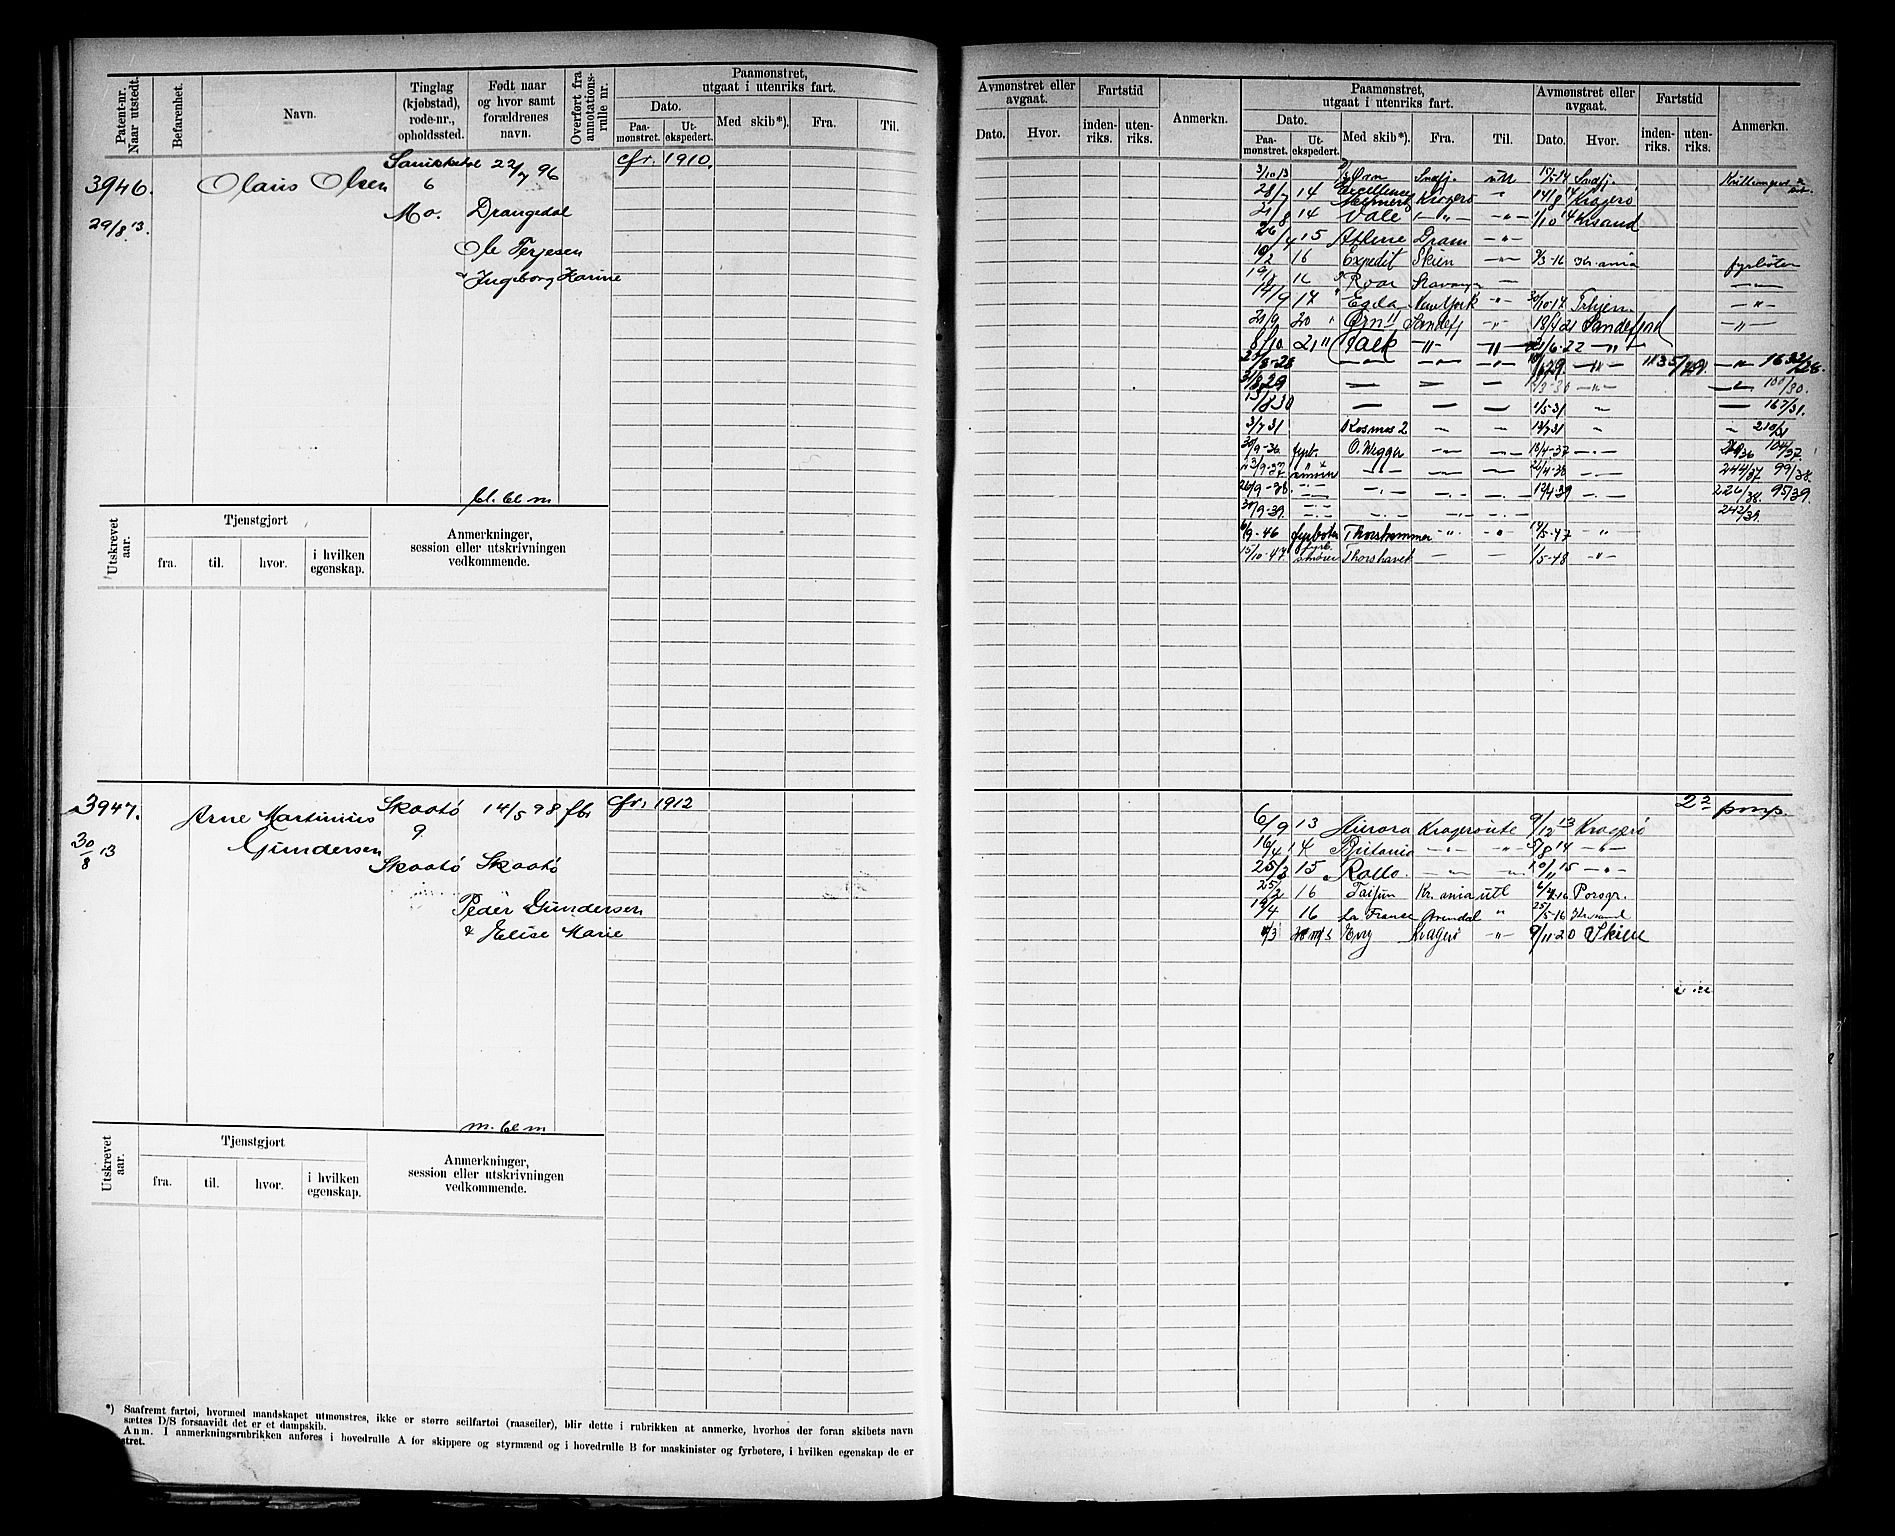 Patent-nr.
Naar utstedt.
Befarenhet.
Navn.
Tinglag
(kjøbstad),
rode-nr.,
opholdssted.
Født naar
og hvor samt
forældrenes
navn.
Overført fra
annotations-
rulle nr.
Paamønstret,
utgaat i utenriks fart.
Dato.
Paa-
mønstret.
Ut-
ekspedert.
Med skib*).
Fra.
Til.
3946.
29/8.13.
Olaus Olsen
6
Mo.
22/7 96
Drangedal
Ole Terjesen
& Ingeborg Karine
cfr. 1910.
bl. bl m
Utskrevet
aar.
Tjenstgjort
fra.
til.
hvor.
i hvilken
egenskap.
Anmerkninger,
session eller utskrivningen
vedkommende.
3947.
30/8 13
Arne Martinius
Gundersen
Skaatø
9.
Skaatø
14/5 98 fbr
Skaatø
Peder Gundersen
& Elise Marie
cfr. 1912
m. bl m
Utskrevet
aar.
Tjenstgjort
fra.
til.
hvor.
i hvilken
egenskap.
Anmerkninger,
session eller utskrivningen
vedkommende.
*) Saafremt fartøi, hvormed mandskapet utmønstres, ikke er større seilfartøi (raaseiler), blir dette i rubrikken at anmerke, hvorhos der foran skibets navn
sættes D/S forsaavidt det er et dampskib.
Anm. I anmerkningsrubrikken anføres i hovedrulle A for skippere og styrmænd og i hovedrulle B for maskinister og fyrbøtere, i hvilken egenskap de er
Avmønstret eller
avgaat.
Dato.
Hvor.
Fartstid
inden-
riks.
uten-
riks.
Anmerkn.
Paamønstret,
utgaat i utenriks fart.
Dato.
Paa-
mønstret.
Ut-
ekspedert.
Med skib*).
Fra.
Til.
Avmønstret eller
avgaat.
Dato.
Hvor.
Fartstid
inden-
riks.
uten-
riks.
Anmerkn.
3/10 13 Ørn Sndfj. utl Sndfj.
28/7 14 Excellence Kragerø " 14/8 14 Kragerø
21/8 14 Vale " - " - 1/10 14 Krsand
26/4 15 Athene Dram - " -
10/2 16 Expedit Skien - " - 9/3-16 Kr.ania fyrbøter
16 Roar Stavanger - - " -
14/9 17 " Egda New York - " - 30/10-17 Trhjem - " -
21/9 20 " Ørn II Sandefj - " - 18/4 21 Sandefjord - " -
8/10 21 " Falk - " - - " - 21/6-22 - " -
/8-28 - " - - " - - " - /6 29. - " - 1632/28.
31/8 29 - - - /3-30 - " - 100/30.
13/8 30 - - - 1/5-31 " - 167/31.
3/7 31 Kosmos 2 - - 13/7 31 " " 210/31
30/9-36. fyrb. O. Wegger - " - - " - 13/4-37 - " - 104/37.
23/9-37. - " - - - 22/4-38 - - 244/37 99/38.
26/9-38. - " - - " - - " - - " - 12/4-39 - " - 226/38. 95/39
30/9-39. - " - - " - - " - - " - 242/39.
6/9-46 fyrbøter Thorshammer - " - - " - 14/5-47 - " -
15/10-47. Thorshavet - - 1/5-48 - " -
2 2 pmp.
6/9 13 Aurora Kragerø utl 9/12 13 Kragerø
16/4 14 Britania - " - - " - 5/8 14 - " -
25/3 15 Rollo - " - - " - 10/11 15 - " -
25/2 16 Taifun Kr.ania utl 6/4-16 Porsgr.
14/4 16 la France Arendal " 25/5-16 Krsand
Kragerø - " - 9/11-20 Skien